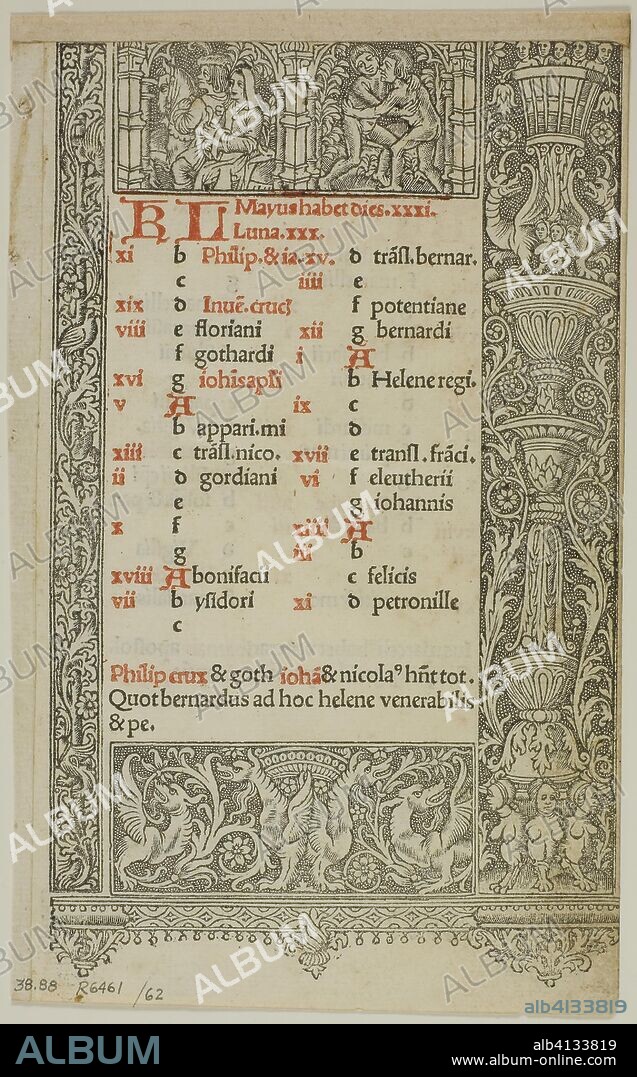 KL Mayus habet dies .xxxi.
Luna .xxx.
xi b Philip. & ia. xv.
c
xix d Inuē. cruc
viii e floriani
f gothardi
xvi g iohīs apłi
v A
b appari. mi
xiii c trāsl. nico.
ii d gordiani
e
x f
g
xviii A bonifacii
vii b ysidori
c
d trāsl. bernar.
iiii e
f potentiane
xii g bernardi
i A
b Helene regi.
ix c
d
xvii e transl. frāci.
vi f eleutherii
g iohannis
xiiii A
iii b
c felicis
xi d petronille
Philip crux & goth iohā & nicolaꝰ hn̄t tot.
Quot bernardus ad hoc helene venerabilis
& pe.
38.88 R6461 /62
alb4133819
ALBUM
alb4133819
www.album-online.com